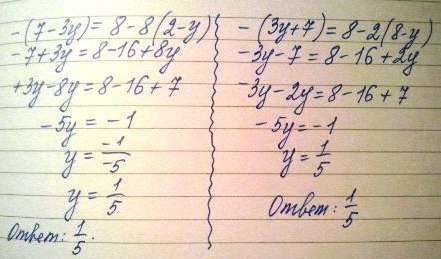 -(7-3y)=8-8(2-y)
-7+3y=8-16+8y
+3y-8y=8-16+7
-5y=-1
y=-1/-5
y=1/5
Ответ: 1/5.
-(3y+7)=8-2(8-y)
-3y-7=8-16+2y
-3y-2y=8-16+7
-5y=-1
y=1/5
Ответ: 1/5